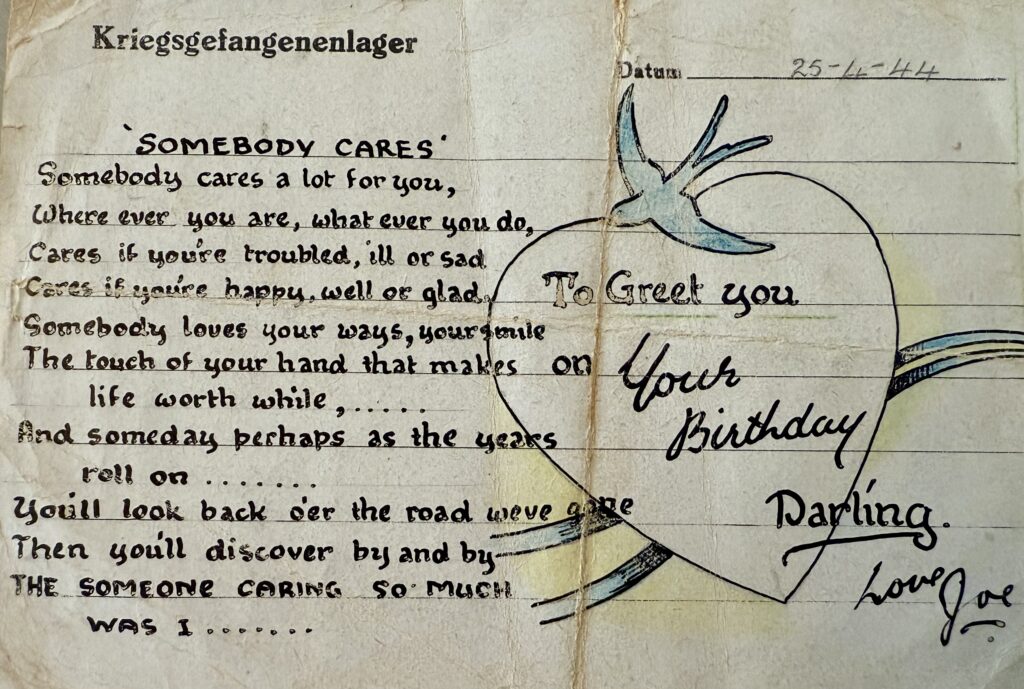 Kriegsgefangenenlager
Datum 25-4-44
'SOMEBODY CARES'
Somebody cares a lot for you,
Where ever you are, what ever you do,
Cares if you're troubled, ill or sad
Cares if you're happy, well or glad,
Somebody loves your ways, your smile
The touch of your hand that makes
life worth while, .....
And someday perhaps as the years
roll on .......
You'll look back o'er the road weve gone
Then you'll discover by and by
THE SOMEONE CARING SO MUCH
WAS I .......
To Greet you
on Your
Birthday
Darling.
Love Joe